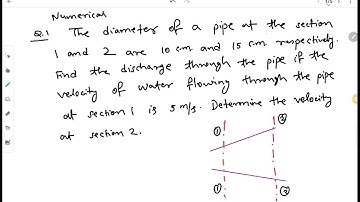 Numerical
Q.1 The diameter of a pipe at the section
1 and 2 are 10 cm and 15 cm respectively.
Find the discharge through the pipe if the
velocity of water flowing through the pipe
at section 1 is 5 m/s. Determine the velocity
at section 2.
① ②
① ②